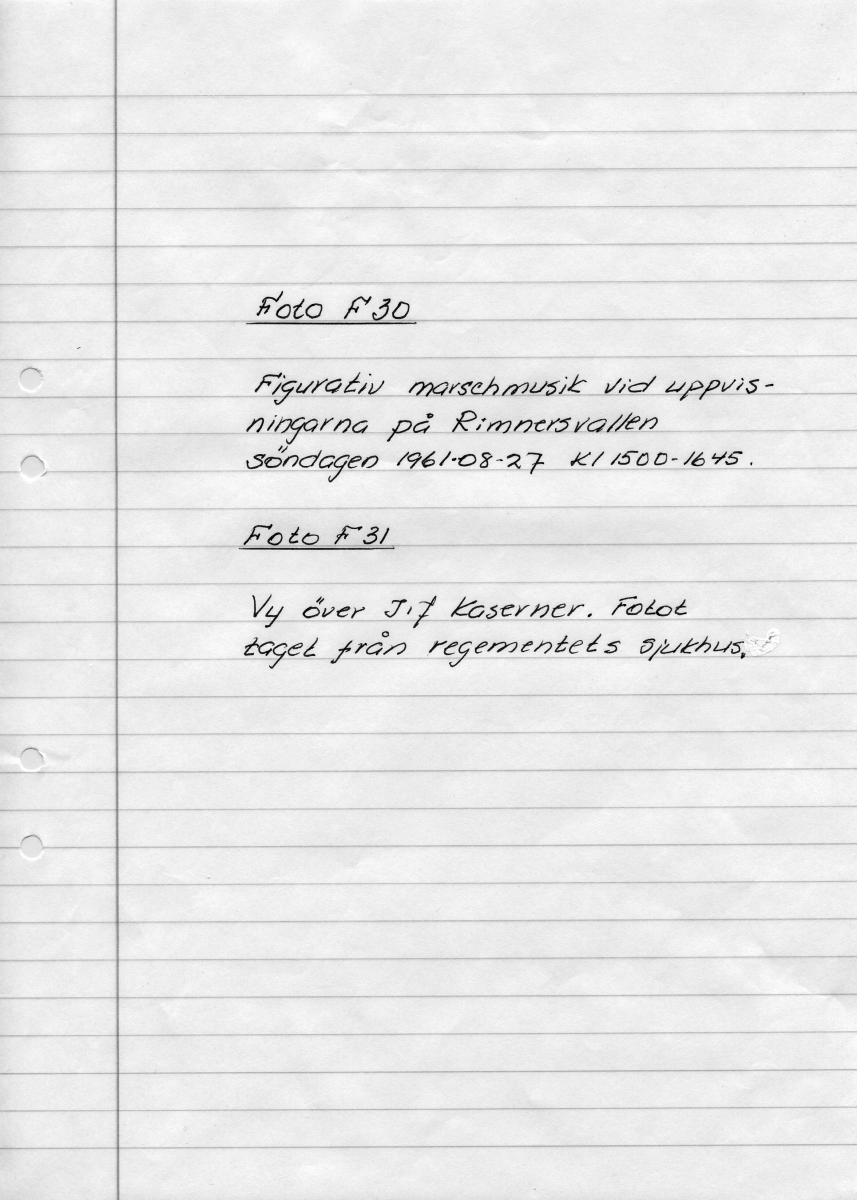 Foto F30
Figurativ marschmusik vid uppvis-
ningarna på Rimnersvallen
söndagen 1961-08-27 Kl 1500-1645.
Foto F31
Vy över I17 Kaserner. Fotot
taget från regementets sjukhus.